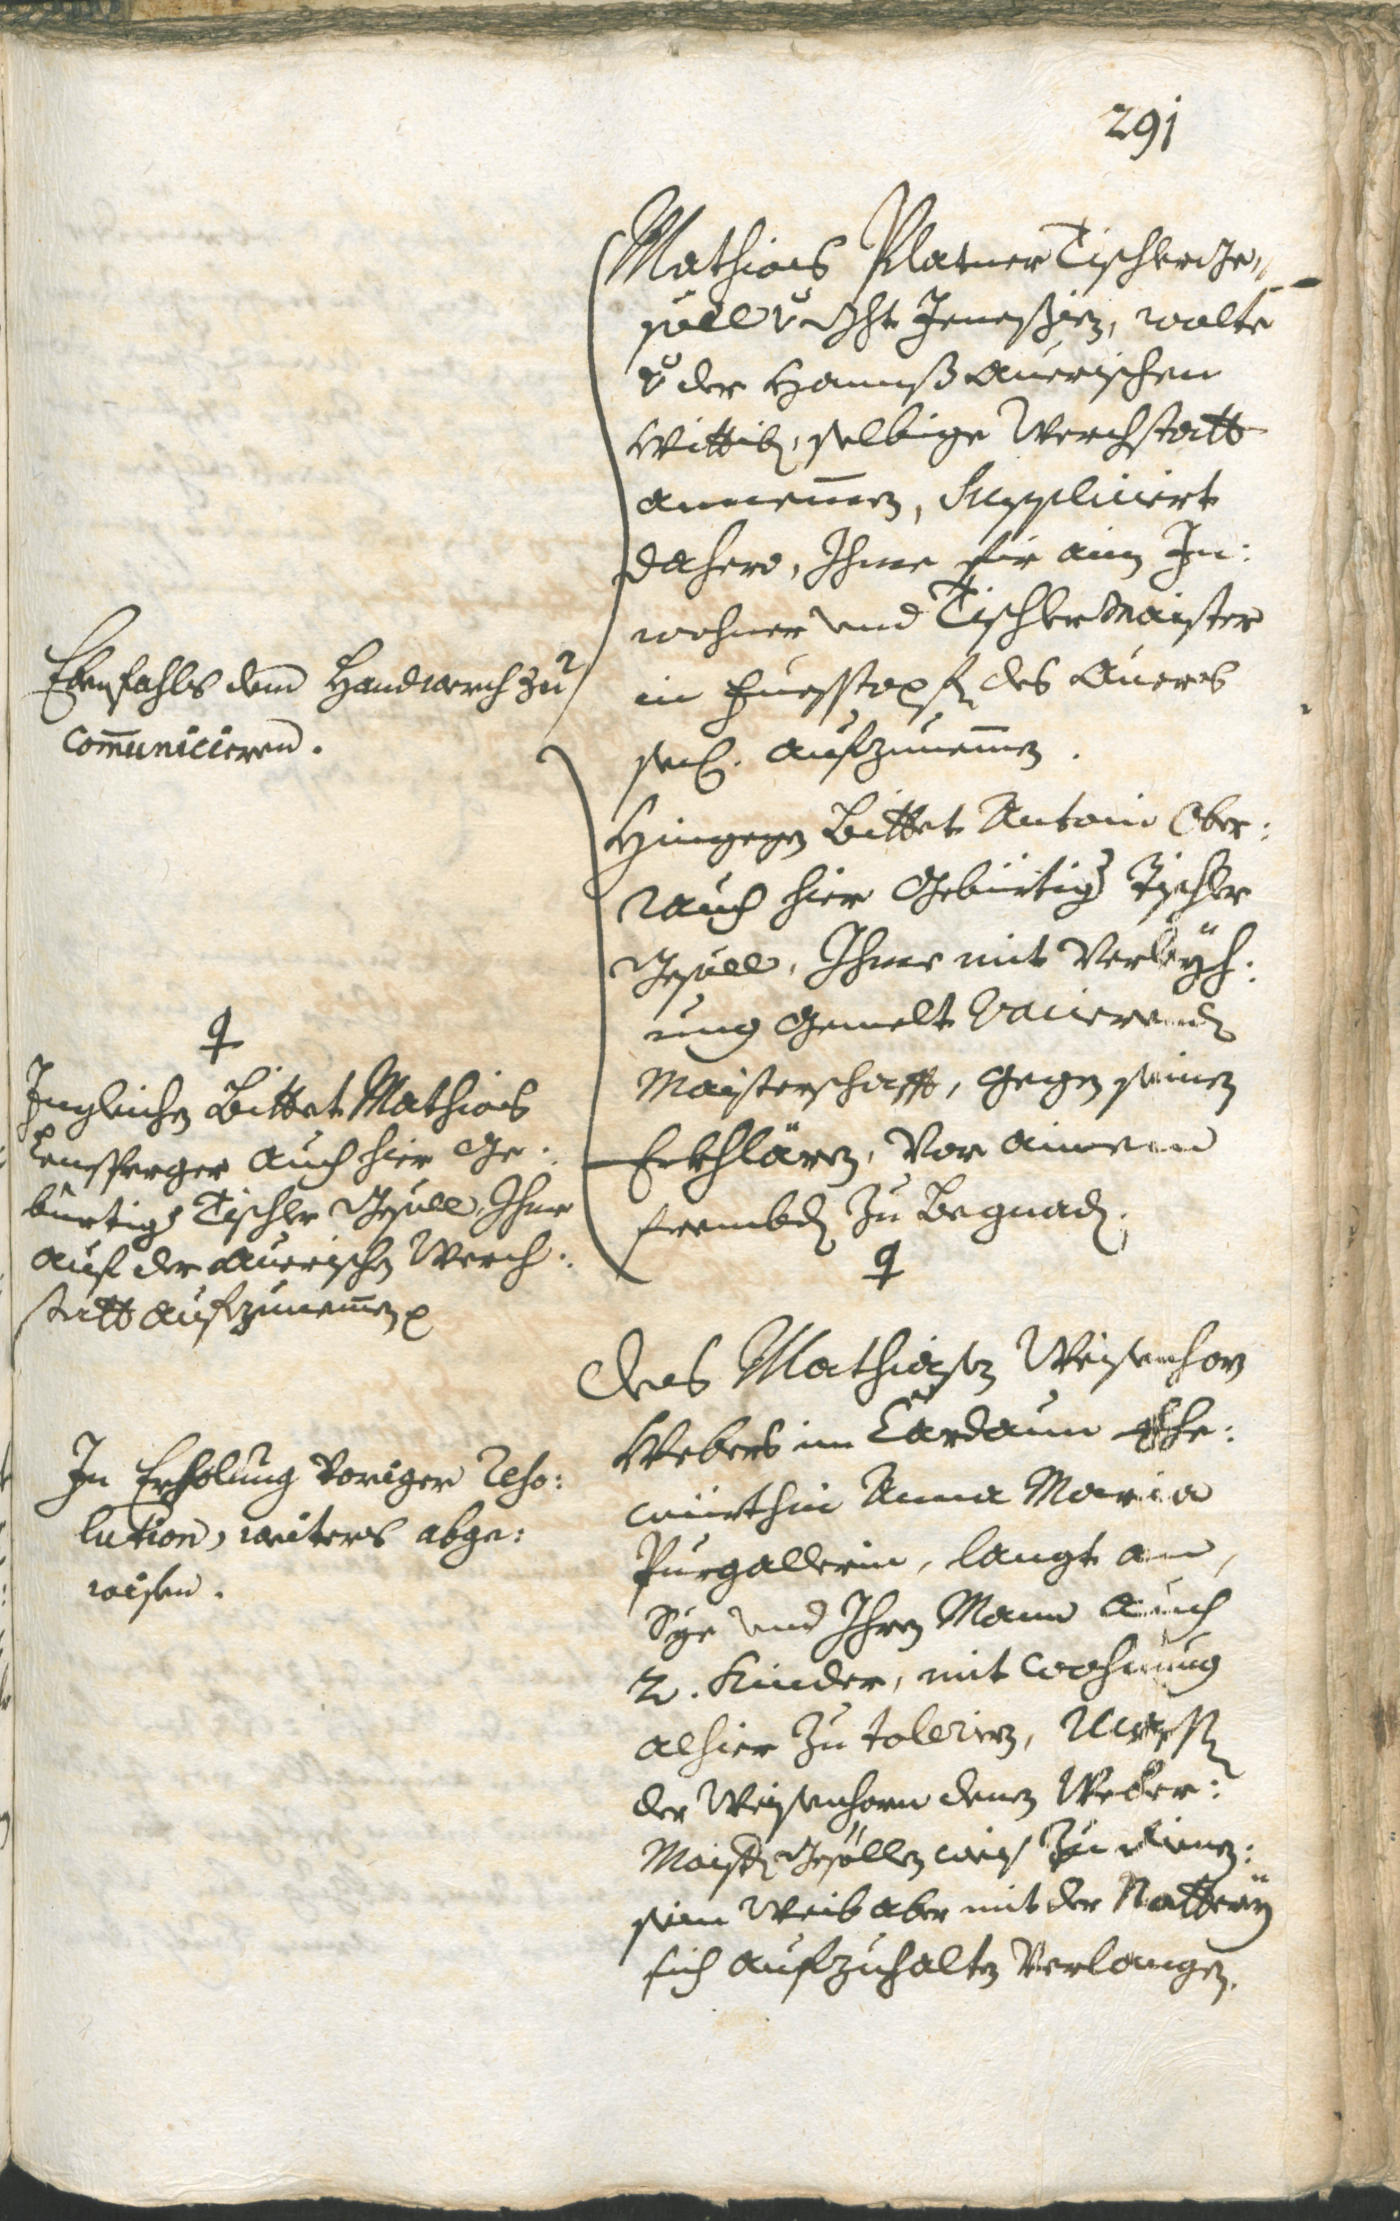 291
Mathias Platner Tischler Ge,,
söll v. Jenesien, wolte
v. der Hannß Auerischen
Wittib, selbige Werchstatt
annemmen, Suppliciert
dahero, Ihme für ain In:
wohner und Tischlermaister
in Fuesstapfen des Auers
seel. aufzunemmen.
Ebenfahls dem Handwerch zu
communicieren.
Hingegen bittet Antoni Ober:
rauch hier gebürtiger Tischler
Gesöll, Ihme mit Verleyh:
ung gemelt vacierenden
Maisterschafft, gegen seinen
Erkhlären, vor ainem
frembden zu begnaden.
Ingleichen bittet Mathias
auch hier ge:
bürtiger Tischler Gesöll, Ihme
auf der Auerischen Werch:
statt aufzunemmen
Des Mathiasen Weisenhorn
Webers im Cardaun Ehe:
würthin Anna Maria
Purgallerin, langt an,
Sye und Ihren Mann auch
2. Kinder, mit Wohnung
alhier zu tolerieren,
der Weisenhorn denen Weber:
Maistern Gesöllen weis zu dienen:
sein Weib aber mit der Natterey
sich aufzuhalten verlangen.
In Erholung voriger Reso:
lution, weiters abge:
wisen.